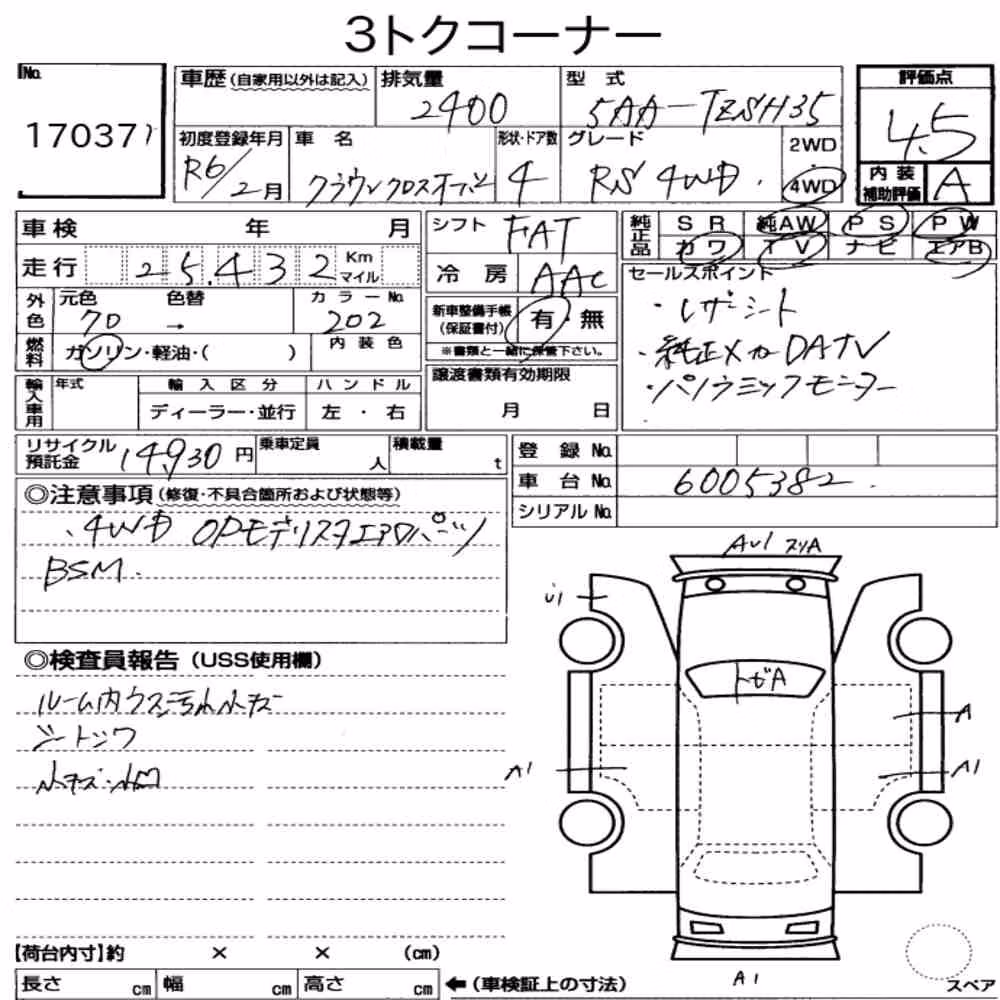 3トクコーナー
No.
170371
車歴(自家用以外は記入)
排気量
2400
型 式
5AA-TZSH35
評価点
4.5
初度登録年月
R6/2月
車 名
クラウンクロスオーバー
形状・ドア数
4
グレード
RS 4WD.
2WD
4WD
内 装
補助評価
A
車検 年 月
シフト
FAT
純正品
SR 純AW PS PW
カワ TV ナビ エアB
走行
25,432
Km
マイル
冷 房
AAC
セールスポイント
・レザーシート
・純正メーカーDATV
・パノラミックモニター
外色
元色
70
色替
→
カラーNo.
202
新車整備手帳
(保証書付)
有・無
※書類と一緒に保管下さい。
燃料
ガソリン・軽油・( )
内 装 色
輸入車用
年式
輸 入 区 分
ディーラー・並行
ハ ン ド ル
左 ・ 右
譲渡書類有効期限
月 日
リサイクル
預託金
14,930円
乗車定員
人
積載量
t
登 録 No.
車 台 No.
6005382.
シリアル No.
◎注意事項(修復・不具合箇所および状態等)
、4WD OPモデリスタエアロパーツ
BSM.
◎検査員報告(USS使用欄)
ルーム内ウス汚れ小キズ
シートシワ
小キズ・小凹
AU1 スリA
U1
トビA
A
A1
A1
A1
【荷台内寸】約 × × (cm)
長さ cm
幅 cm
高さ cm
←(車検証上の寸法)
スペア